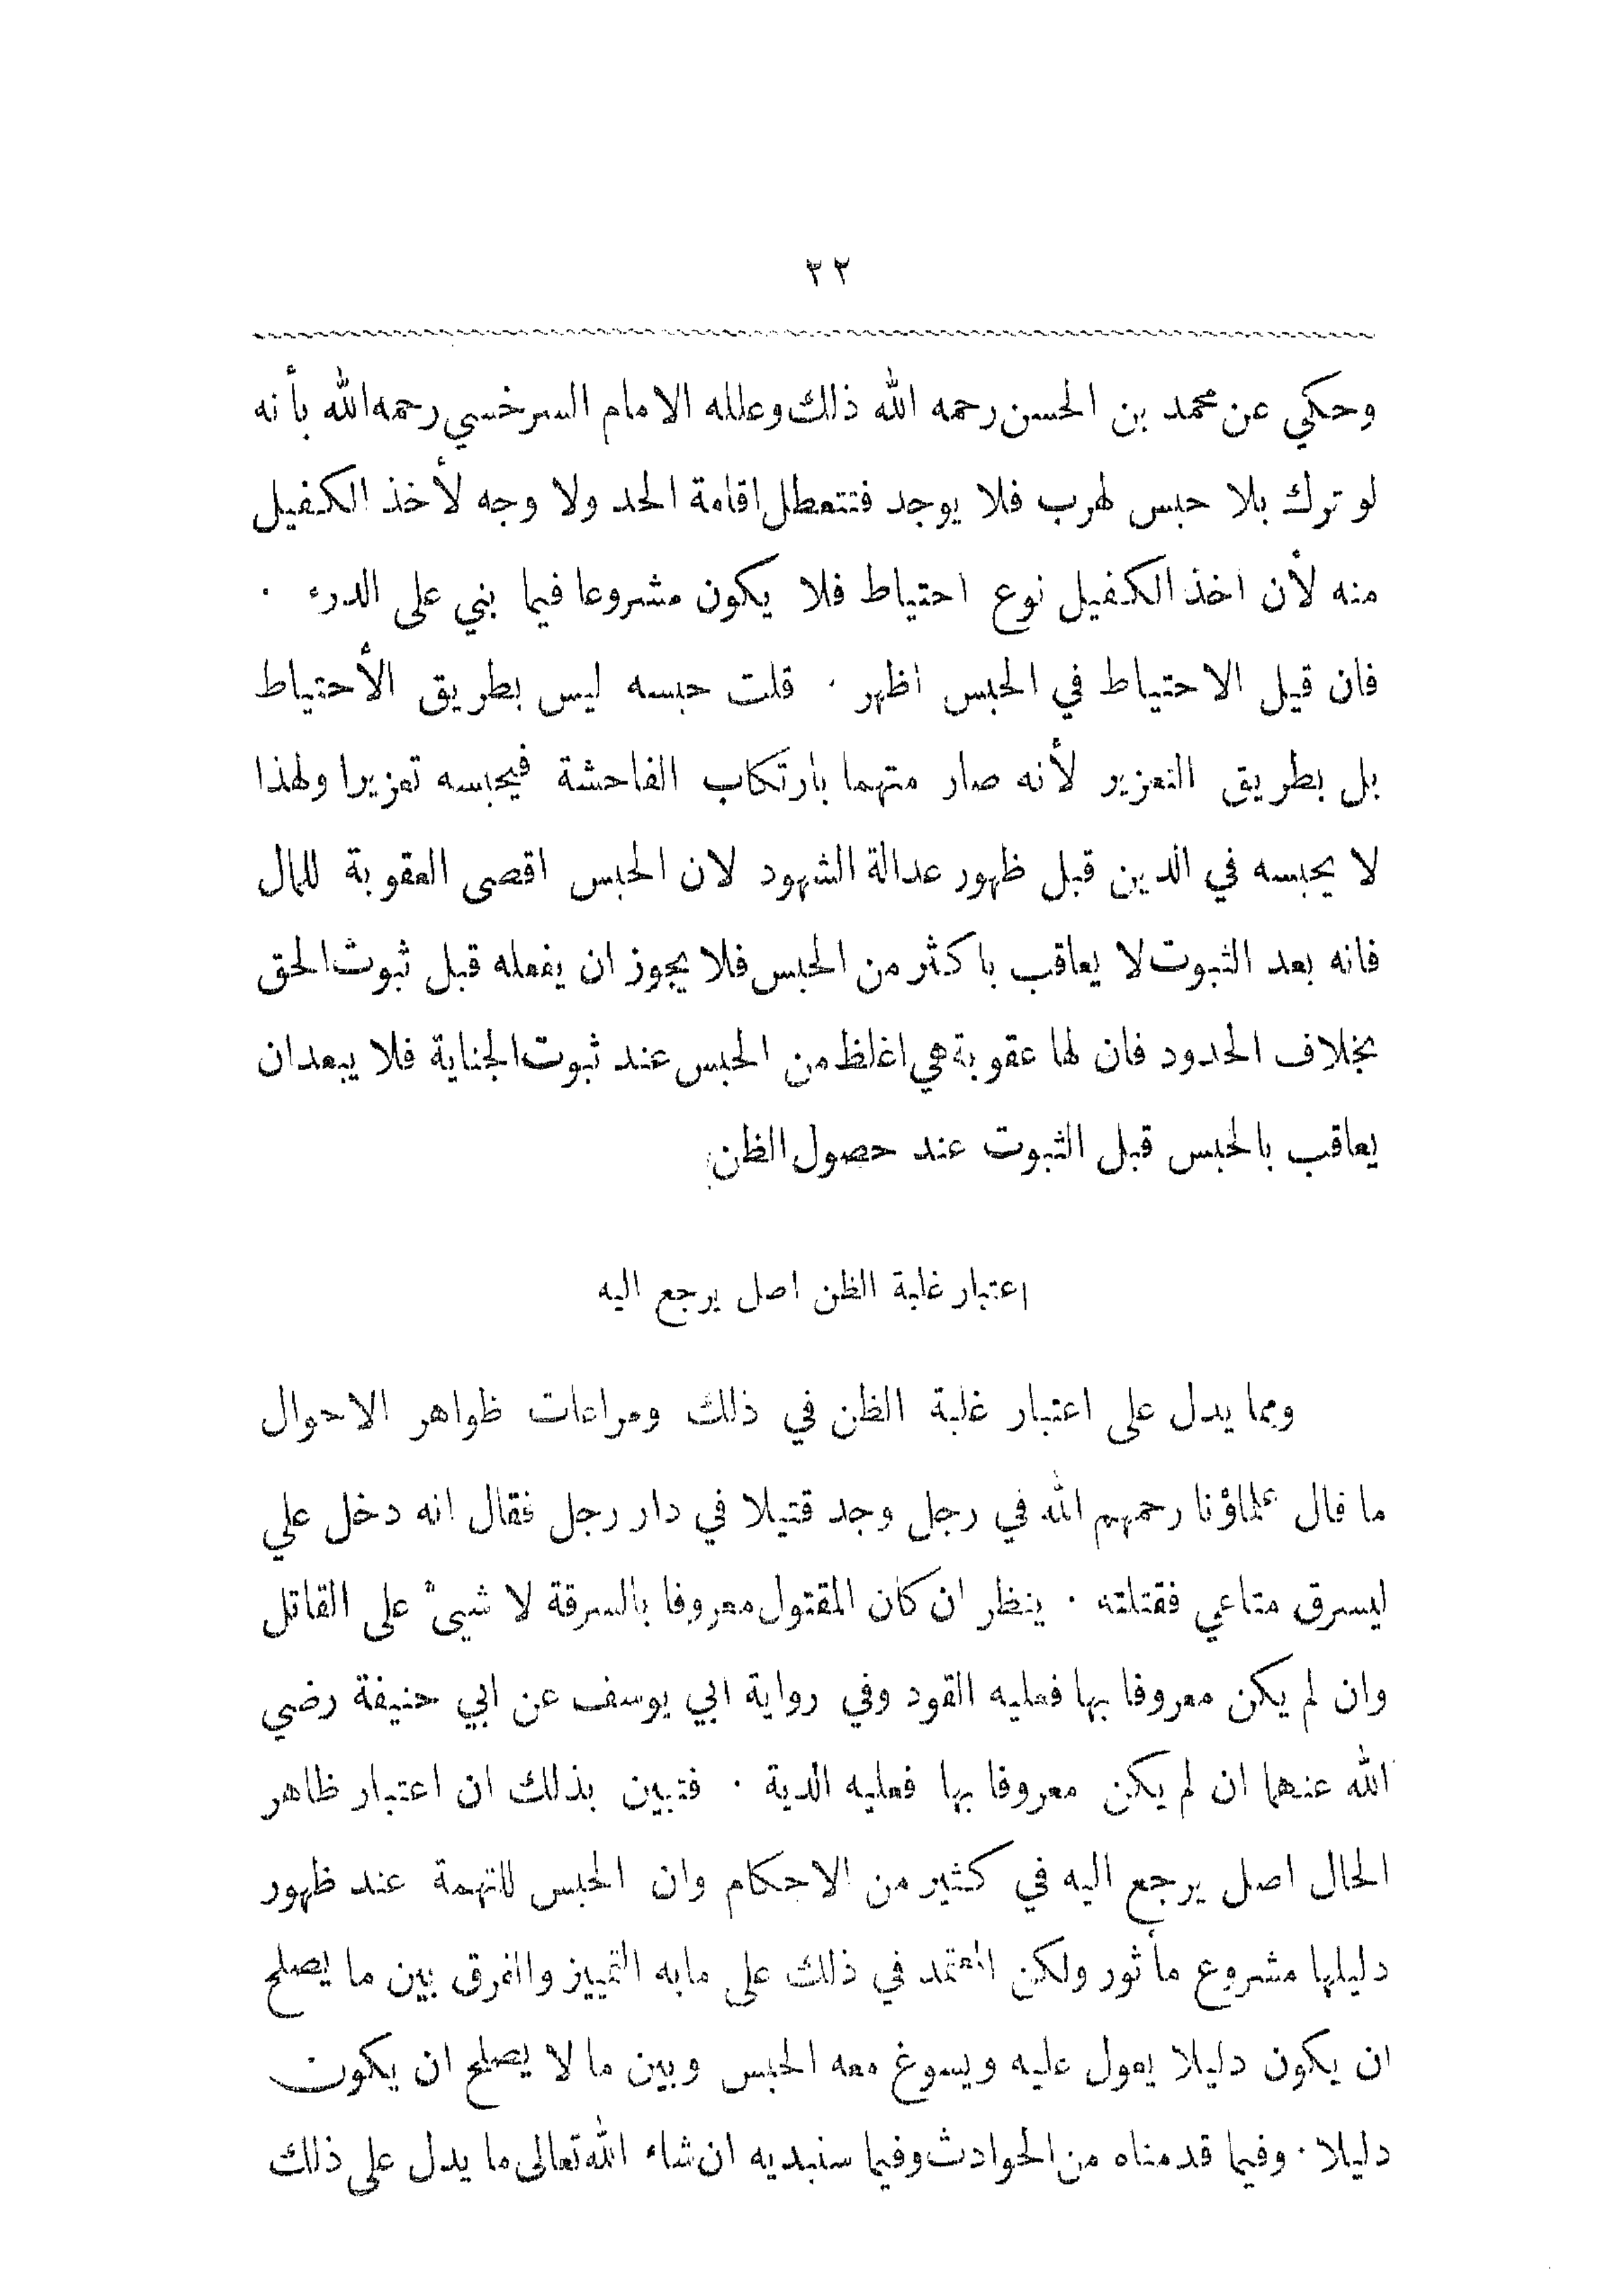 ٢٢
وحكي عن محمد بن الحسن رحمه الله ذلك وعلله الامام السرخسي رحمه الله بأنه
لو ترك بلا حبس لهرب فلا يوجد فتتعطل اقامة الحد ولا وجه لأخذ الكفيل
منه لأن اخذ الكفيل نوع احتياط فلا يكون مشروعا فيما بني على الدرء .
فان قيل الاحتياط في الحبس اظهر . قلت حبسه ليس بطريق الأحتياط
بل بطريق التعزير لأنه صار متهما بارتكاب الفاحشة فيحبسه تعزيرا ولهذا
لا يحبسه في الدين قبل ظهور عدالة الشهود لان الحبس اقصى العقوبة للمال
فانه بعد الثبوت لا يعاقب باكثر من الحبس فلا يجوز ان يفعله قبل ثبوت الحق
بخلاف الحدود فان لها عقوبة هي اغلظ من الحبس عند ثبوت الجناية فلا يبعد ان
يعاقب بالحبس قبل الثبوت عند حصول الظن
اعتبار غلبة الظن اصل يرجع اليه
ومما يدل على اعتبار غلبة الظن في ذلك ومراعات ظواهر الاحوال
ما قال علماؤنا رحمهم الله في رجل وجد قتيلا في دار رجل فقال انه دخل علي
ليسرق متاعي فقتلته . ينظر ان كان المقتول معروفا بالسرقة لا شيئ على القاتل
وان لم يكن معروفا بها فعليه القود وفي رواية ابي يوسف عن ابي حنيفة رضي
الله عنهما ان لم يكن معروفا بها فعليه الدية . فتبين بذلك ان اعتبار ظاهر
الحال اصل يرجع اليه في كثير من الاحكام وان الحبس للتهمة عند ظهور
دليلها مشروع مأثور ولكن المعتمد في ذلك على مابه التمييز والفرق بين ما يصلح
ان يكون دليلا يعول عليه ويسوغ معه الحبس وبين ما لا يصلح ان يكون
دليلا . وفيما قدمناه من الحوادث وفيما سنبديه ان شاء الله تعالى ما يدل على ذلك